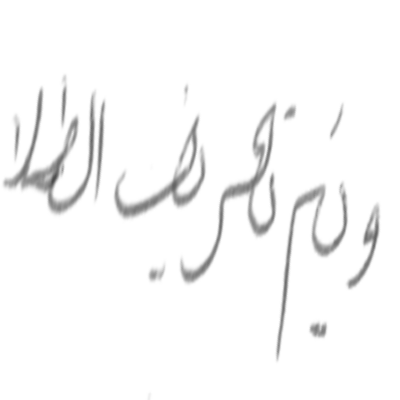 ويتم تعريف الطلا